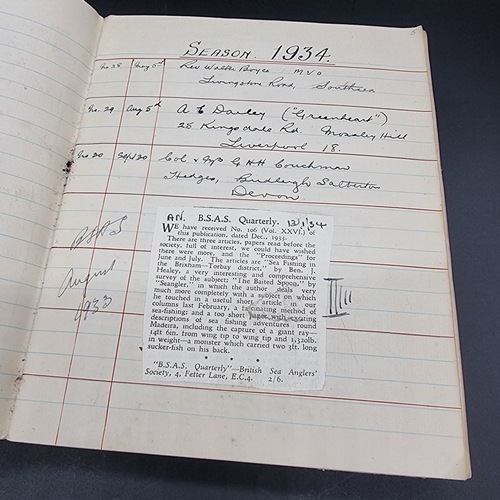 5
SEASON. 1934.
No. 28 Aug 5th Rev Walter Boyce M.V.O
Livingstone Road, Southsea
No. 29 Aug 5th A E Danley ("Greenheart")
25 Kingsdale Rd. Mossley Hill
Liverpool 18.
No 30 Sept 20 Col & Mrs G H H Couchman
Hedges, Budleigh Salterton
Devon.
BSAS
August
1933
A.N. B.S.A.S. Quarterly. 13/1/34
WE have received No. 106 (Vol. XXVI.) of
this publication, dated Dec., 1933.
There are three articles, papers read before the
society, full of interest, we could have wished
there were more, and the "Proceedings" for
June and July. The articles are "Sea Fishing in
the Brixham—Torbay district," by Ben. J.
Healey, a very interesting and comprehensive
survey of the subject; "The Baited Spoon," by
"Seangler," in which the author deals very
much more completely with a subject on which
he touched in a useful short article in our
columns last February, a fascinating method of
sea-fishing; and a too short paper with exciting
descriptions of sea fishing adventures round
Madeira, including the capture of a giant ray—
14ft 6in. from wing tip to wing tip and 1,320lb.
in weight—a monster which carried two 3ft. long
sucker-fish on his back.
"B.S.A.S. Quarterly"—British Sea Anglers'
Society, 4, Fetter Lane, E.C.4. 2/6.